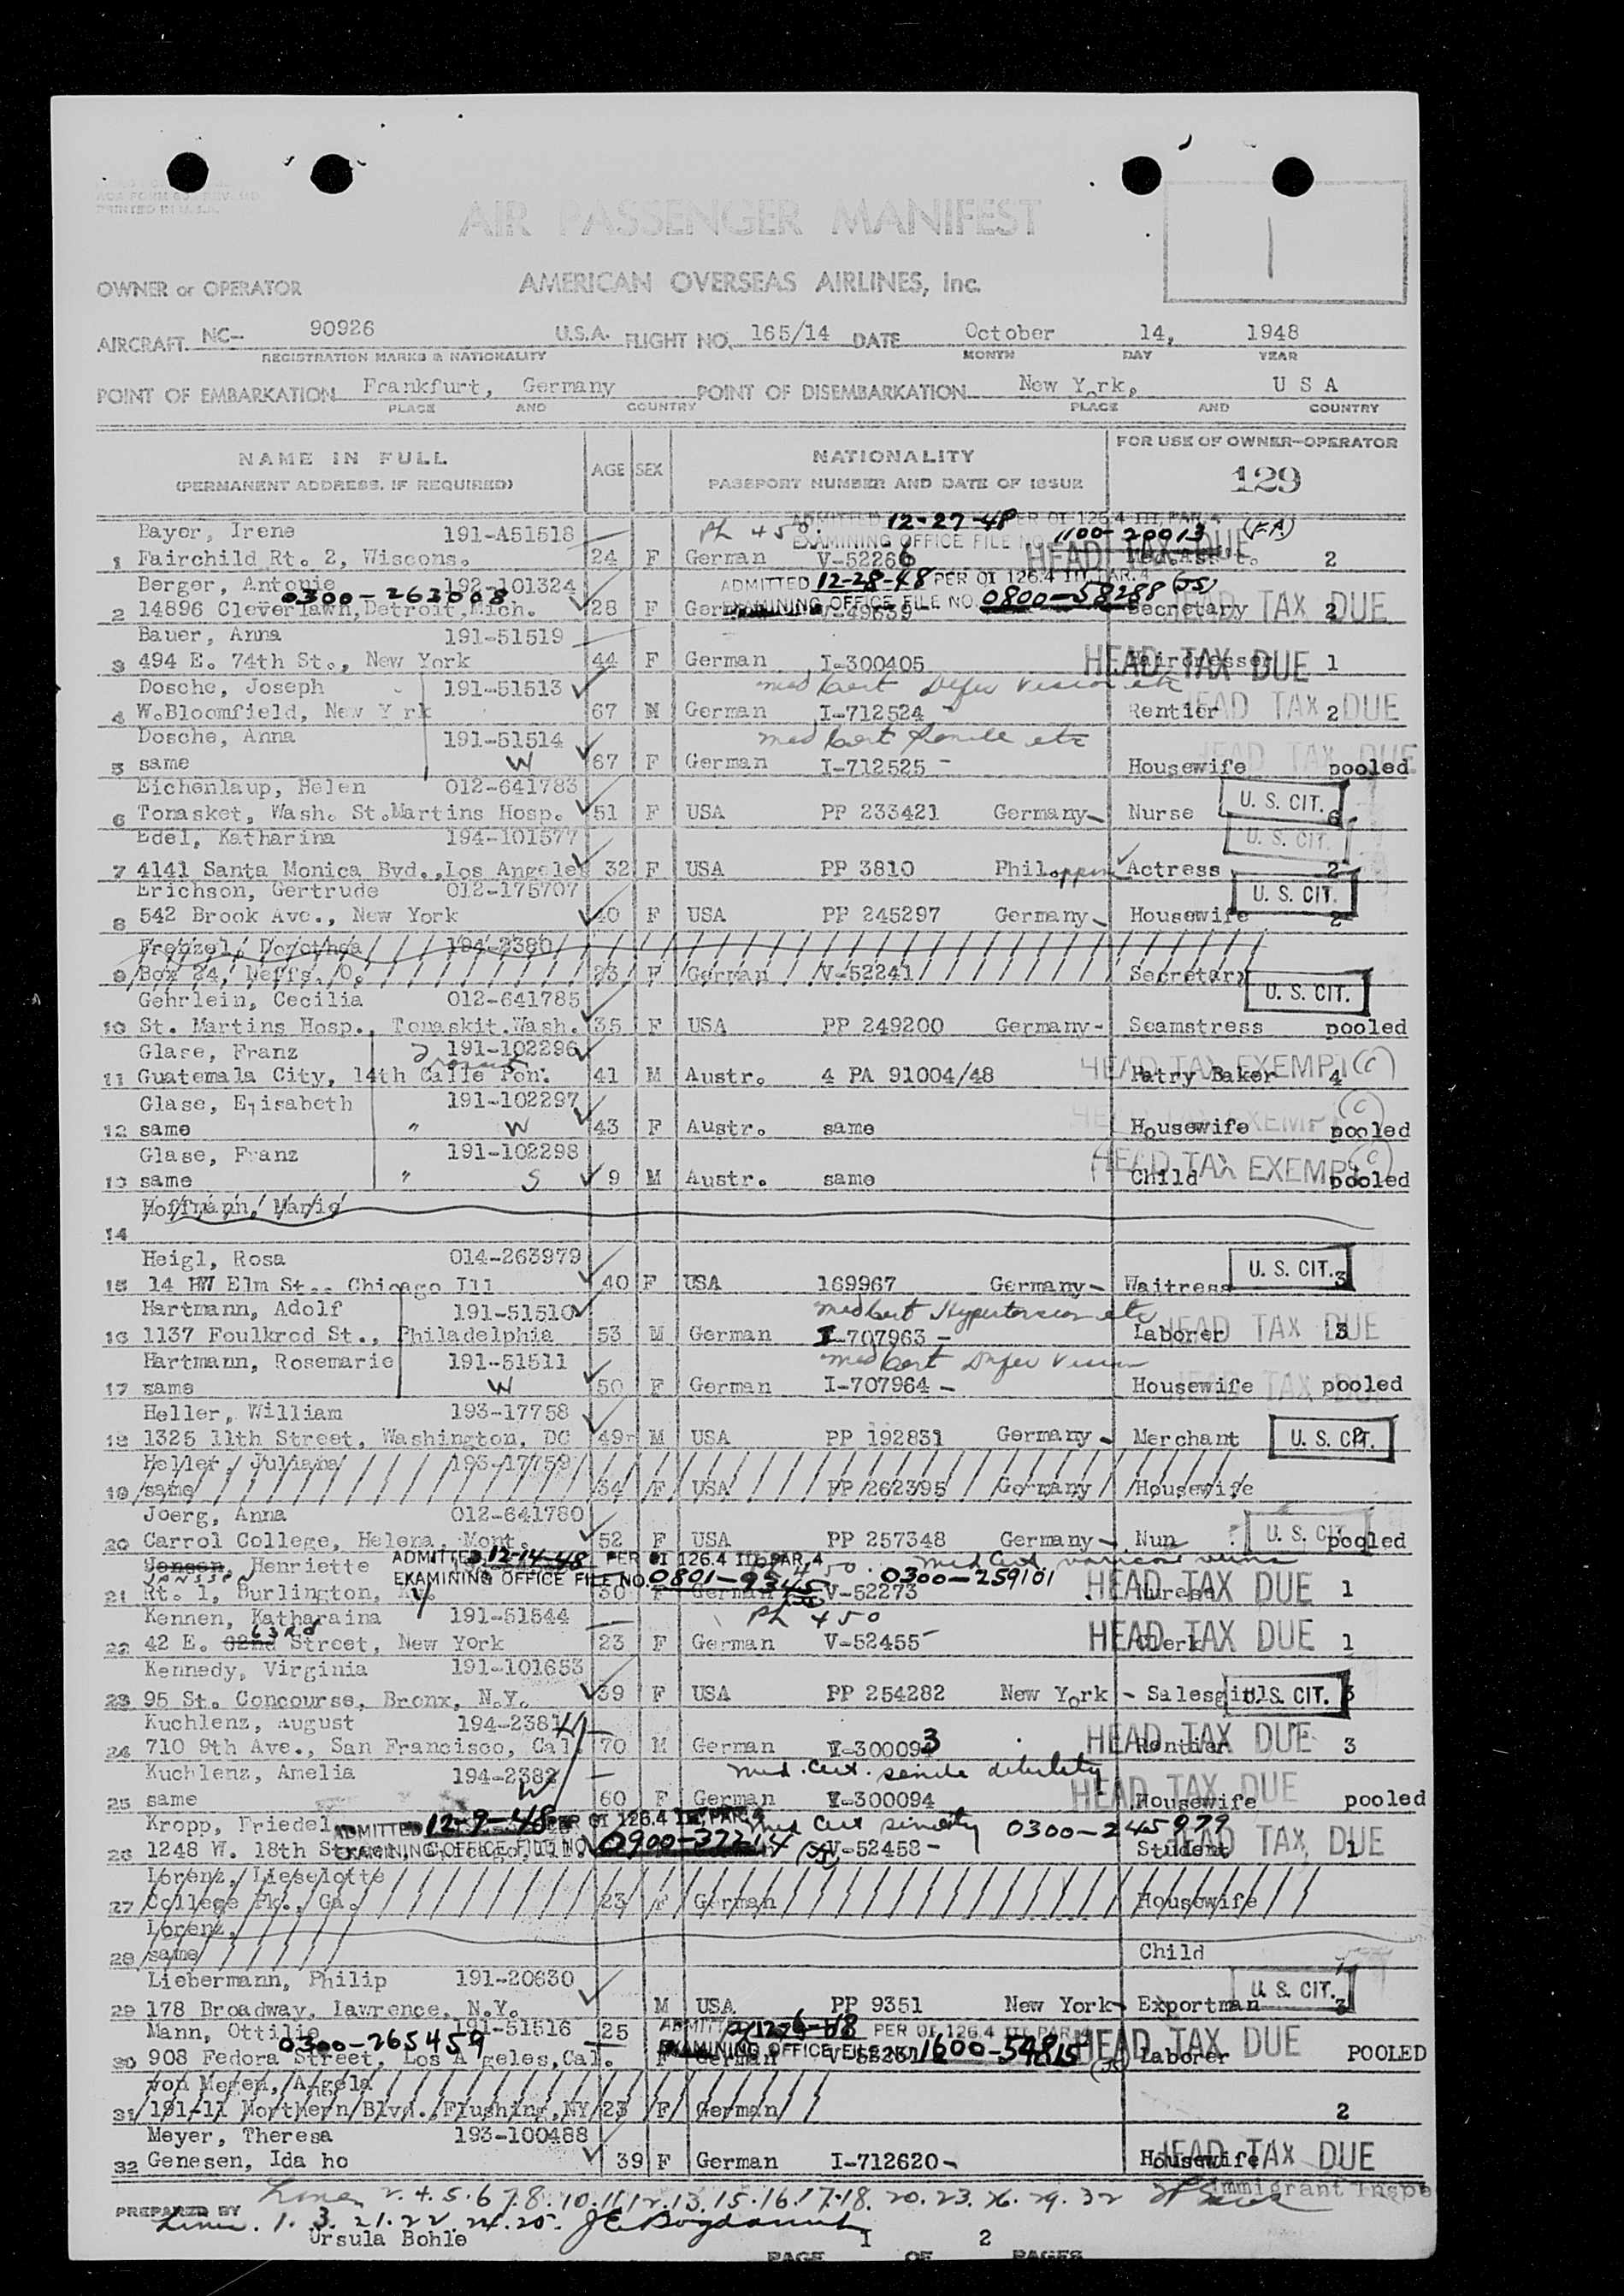 AIR PASSENGER MANIFEST
1
OWNER or OPERATOR AMERICAN OVERSEAS AIRLINES, Inc.
AIRCRAFT NC- 90926 U.S.A. FLIGHT NO. 165/14 DATE October 14, 1948
REGISTRATION MARKS & NATIONALITY MONTH DAY YEAR
POINT OF EMBARKATION Frankfurt, Germany POINT OF DISEMBARKATION New York, U S A
PLACE AND COUNTRY PLACE AND COUNTRY
NAME IN FULL AGE SEX NATIONALITY FOR USE OF OWNER-OPERATOR
(PERMANENT ADDRESS, IF REQUIRED) PASSPORT NUMBER AND DATE OF ISSUE 129
Bayer, Irene 191-A51518 Ph 450. ADMITTED 12-27-48 PER OI 126.4 III, PAR. 4 (F.A)
EXAMINING OFFICE FILE NO. 1100-20013
1 Fairchild Rt. 2, Wiscons. 24 F German V-52266 HEAD TAX DUE 2
Berger, Antonie 192-101324 ADMITTED 12-28-48 PER OI 126.4 III, PAR. 4
0300-263008 EXAMINING OFFICE FILE NO. 0800-58288 (JS)
2 14896 Cleverlawn, Detroit, Mich. 28 F German V-49639 Secretary HEAD TAX DUE 2
Bauer, Anna 191-51519
3 494 E. 74th St., New York 44 F German I-300405 Hairdresser HEAD TAX DUE 1
Dosche, Joseph 191-51513 med cert Defec vision etc
4 W.Bloomfield, New Y rk 67 M German I-712524 - Rentier HEAD TAX DUE 2
Dosche, Anna 191-51514 med cert Senile etc
5 same W 67 F German I-712525 - Housewife HEAD TAX DUE pooled
Eichenlaup, Helen 012-641783 U. S. CIT.
6 Tonasket, Wash. St.Martins Hosp. 51 F USA PP 233421 Germany - Nurse 6
Edel, Katharina 194-101577 U. S. CIT.
7 4141 Santa Monica Bvd.,Los Angeles 32 F USA PP 3810 Philoppin Actress 2
Erichson, Gertrude 012-175707 U. S. CIT.
8 542 Brook Ave., New York 40 F USA PP 245297 Germany - Housewife 2
Frenzel, Dorothea 194-2380
9 Box 24, Neffs, O. 23 F German V-52241 Secretary
Gehrlein, Cecilia 012-641785 U. S. CIT.
10 St. Martins Hosp., Tonaskit.Wash. 35 F USA PP 249200 Germany - Seamstress pooled
Glase, Franz 191-102296
11 Guatemala City, 14th Calle Pon. 41 M Austr. 4 PA 91004/48 Patry Baker HEAD TAX EXEMPT (c) 4
Glase, Elisabeth 191-102297
12 same " W 43 F Austr. same Housewife HEAD TAX EXEMPT (c) pooled
Glase, Franz 191-102298
13 same " S 9 M Austr. same Child HEAD TAX EXEMPT (c) pooled
Hoffmann, Marie
14
Heigl, Rosa 014-263979 U. S. CIT.
15 14 HW Elm St.. Chicago Ill 40 F USA 169967 Germany - Waitress 3
Hartmann, Adolf 191-51510 med cert Hypertension etc
16 1137 Foulkrod St., Philadelphia 53 M German I-707963 - Laborer HEAD TAX DUE 3
Hartmann, Rosemarie 191-51511 med cert Defec Vision
17 same W 50 F German I-707964 - Housewife HEAD TAX DUE pooled
Heller, William 193-17758
18 1325 11th Street, Washington, DC 49 M USA PP 192831 Germany - Merchant U. S. CIT.
Heller, Juliana 193-17759
19 same 34 F USA PP 262395 Germany Housewife
Joerg, Anna 012-641780
20 Carrol College, Helena, Mont. 52 F USA PP 257348 Germany - Nun U. S. CIT. pooled
Jensen, Henriette ADMITTED 12-14-48 PER OI 126.4 III, PAR. 4 med cert varicose veins
Janssen EXAMINING OFFICE FILE NO. 0801-9345 0300-259101
21 Rt. 1, Burlington, Ky. 30 F German V-52273 Nurse HEAD TAX DUE 1
Kennen, Katharaina 191-51544 Ph 450
63rd
22 42 E. 62nd Street, New York 23 F German V-52455 - Clerk HEAD TAX DUE 1
Kennedy, Virginia 191-101653
23 95 St. Concourse, Bronx, N.Y. 39 F USA PP 254282 New York - Salesgirl U. S. CIT. 3
Kuchlenz, August 194-2381
24 710 9th Ave., San Francisco, Cal. 70 M German I-300093 Rentier HEAD TAX DUE 3
Kuchlenz, Amelia 194-2382 med. cert. senile debility
25 same W 60 F German I-300094 Housewife HEAD TAX DUE pooled
Kropp, Friedel ADMITTED 12-9-48 PER OI 126.4 III, PAR. 4 med cert 0300-245979
EXAMINING OFFICE FILE NO. 0900-37214 (JS)
26 1248 W. 18th Street, Chicago, Ill. V-52458 - Student HEAD TAX DUE 1
Lorenz, Lieselotte
27 College Pk., Ga. 23 F German Housewife
Lorenz,
28 same Child
Liebermann, Philip 191-20630 U. S. CIT.
29 178 Broadway, Lawrence, N.Y. M USA PP 9351 New York - Exportman 3
Mann, Ottilie 191-51516 25 ADMITTED 12-6-48 PER OI 126.4 III PAR. 4
0300-265459 EXAMINING OFFICE FILE NO. 1600-54815 (JS)
30 908 Fedora Street, Los A geles,Cal. F German Laborer HEAD TAX DUE POOLED
von Megen, Angela
31 191-11 Northern Blvd.,Flushing,NY 23 F German 2
Meyer, Theresa 193-100488
32 Genesen, Ida ho 39 F German I-712620 - Housewife HEAD TAX DUE
Immigrant Inspe
PREPARED BY Lines 2.4.5.6.7.8.10.11.12.13.15.16.17.18.20.23.26.29.32
Lines. 1.3.21.22.24.25.
Ursula Bohle 1 2
PAGE OF PAGES